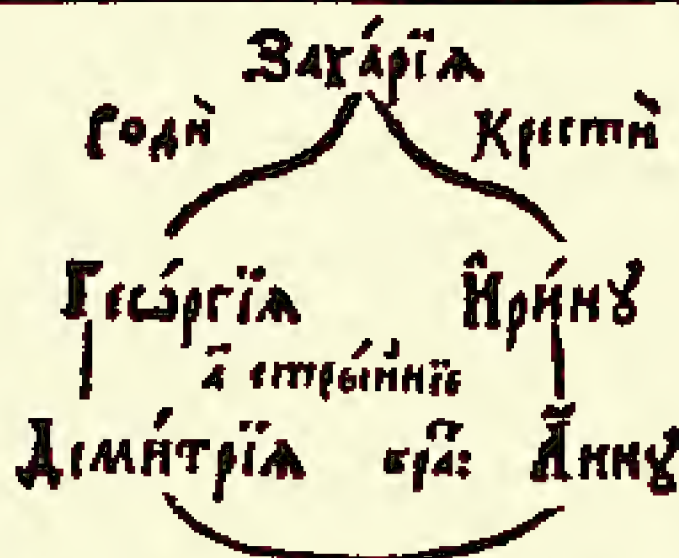 Заха́рїѧ
родѝ Крестѝ
Геѡ́ргїѧ И҆ри́нꙋ
а҃ стры́йнїе
Дими́трїѧ бра҃: А҆́ннꙋ